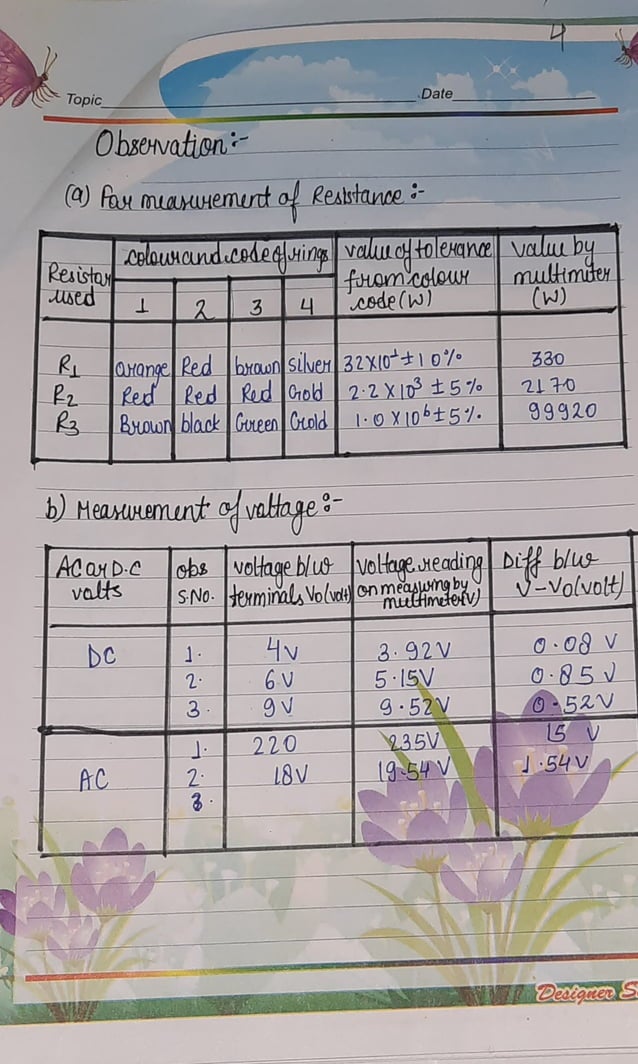 4
Topic Date
Observation :-
(a) For measurement of Resistance :-
Resistor used | colour and code of rings | value of tolerance from colour code (W) | value by multimeter (W)
1 2 3 4
R1 Orange Red brown Silver 32X10¹±10% 330
R2 Red Red Red Gold 2.2 X 10³ ± 5% 2170
R3 Brown black Green Gold 1.0 X 10⁶ ± 5% 99920
b) Measurement of voltage :-
AC or D.C volts | obs S.NO. | voltage b/w terminals Vo(volt) | voltage reading on measuring by multimeter(v) | Diff b/w V-Vo(volt)
DC 1. 4V 3.92V 0.08 V
2. 6V 5.15V 0.85 V
3. 9V 9.52V 0.52V
1. 220 235V 15 V
AC 2. 18V 19.54 V 1.54V
3.
Designer S